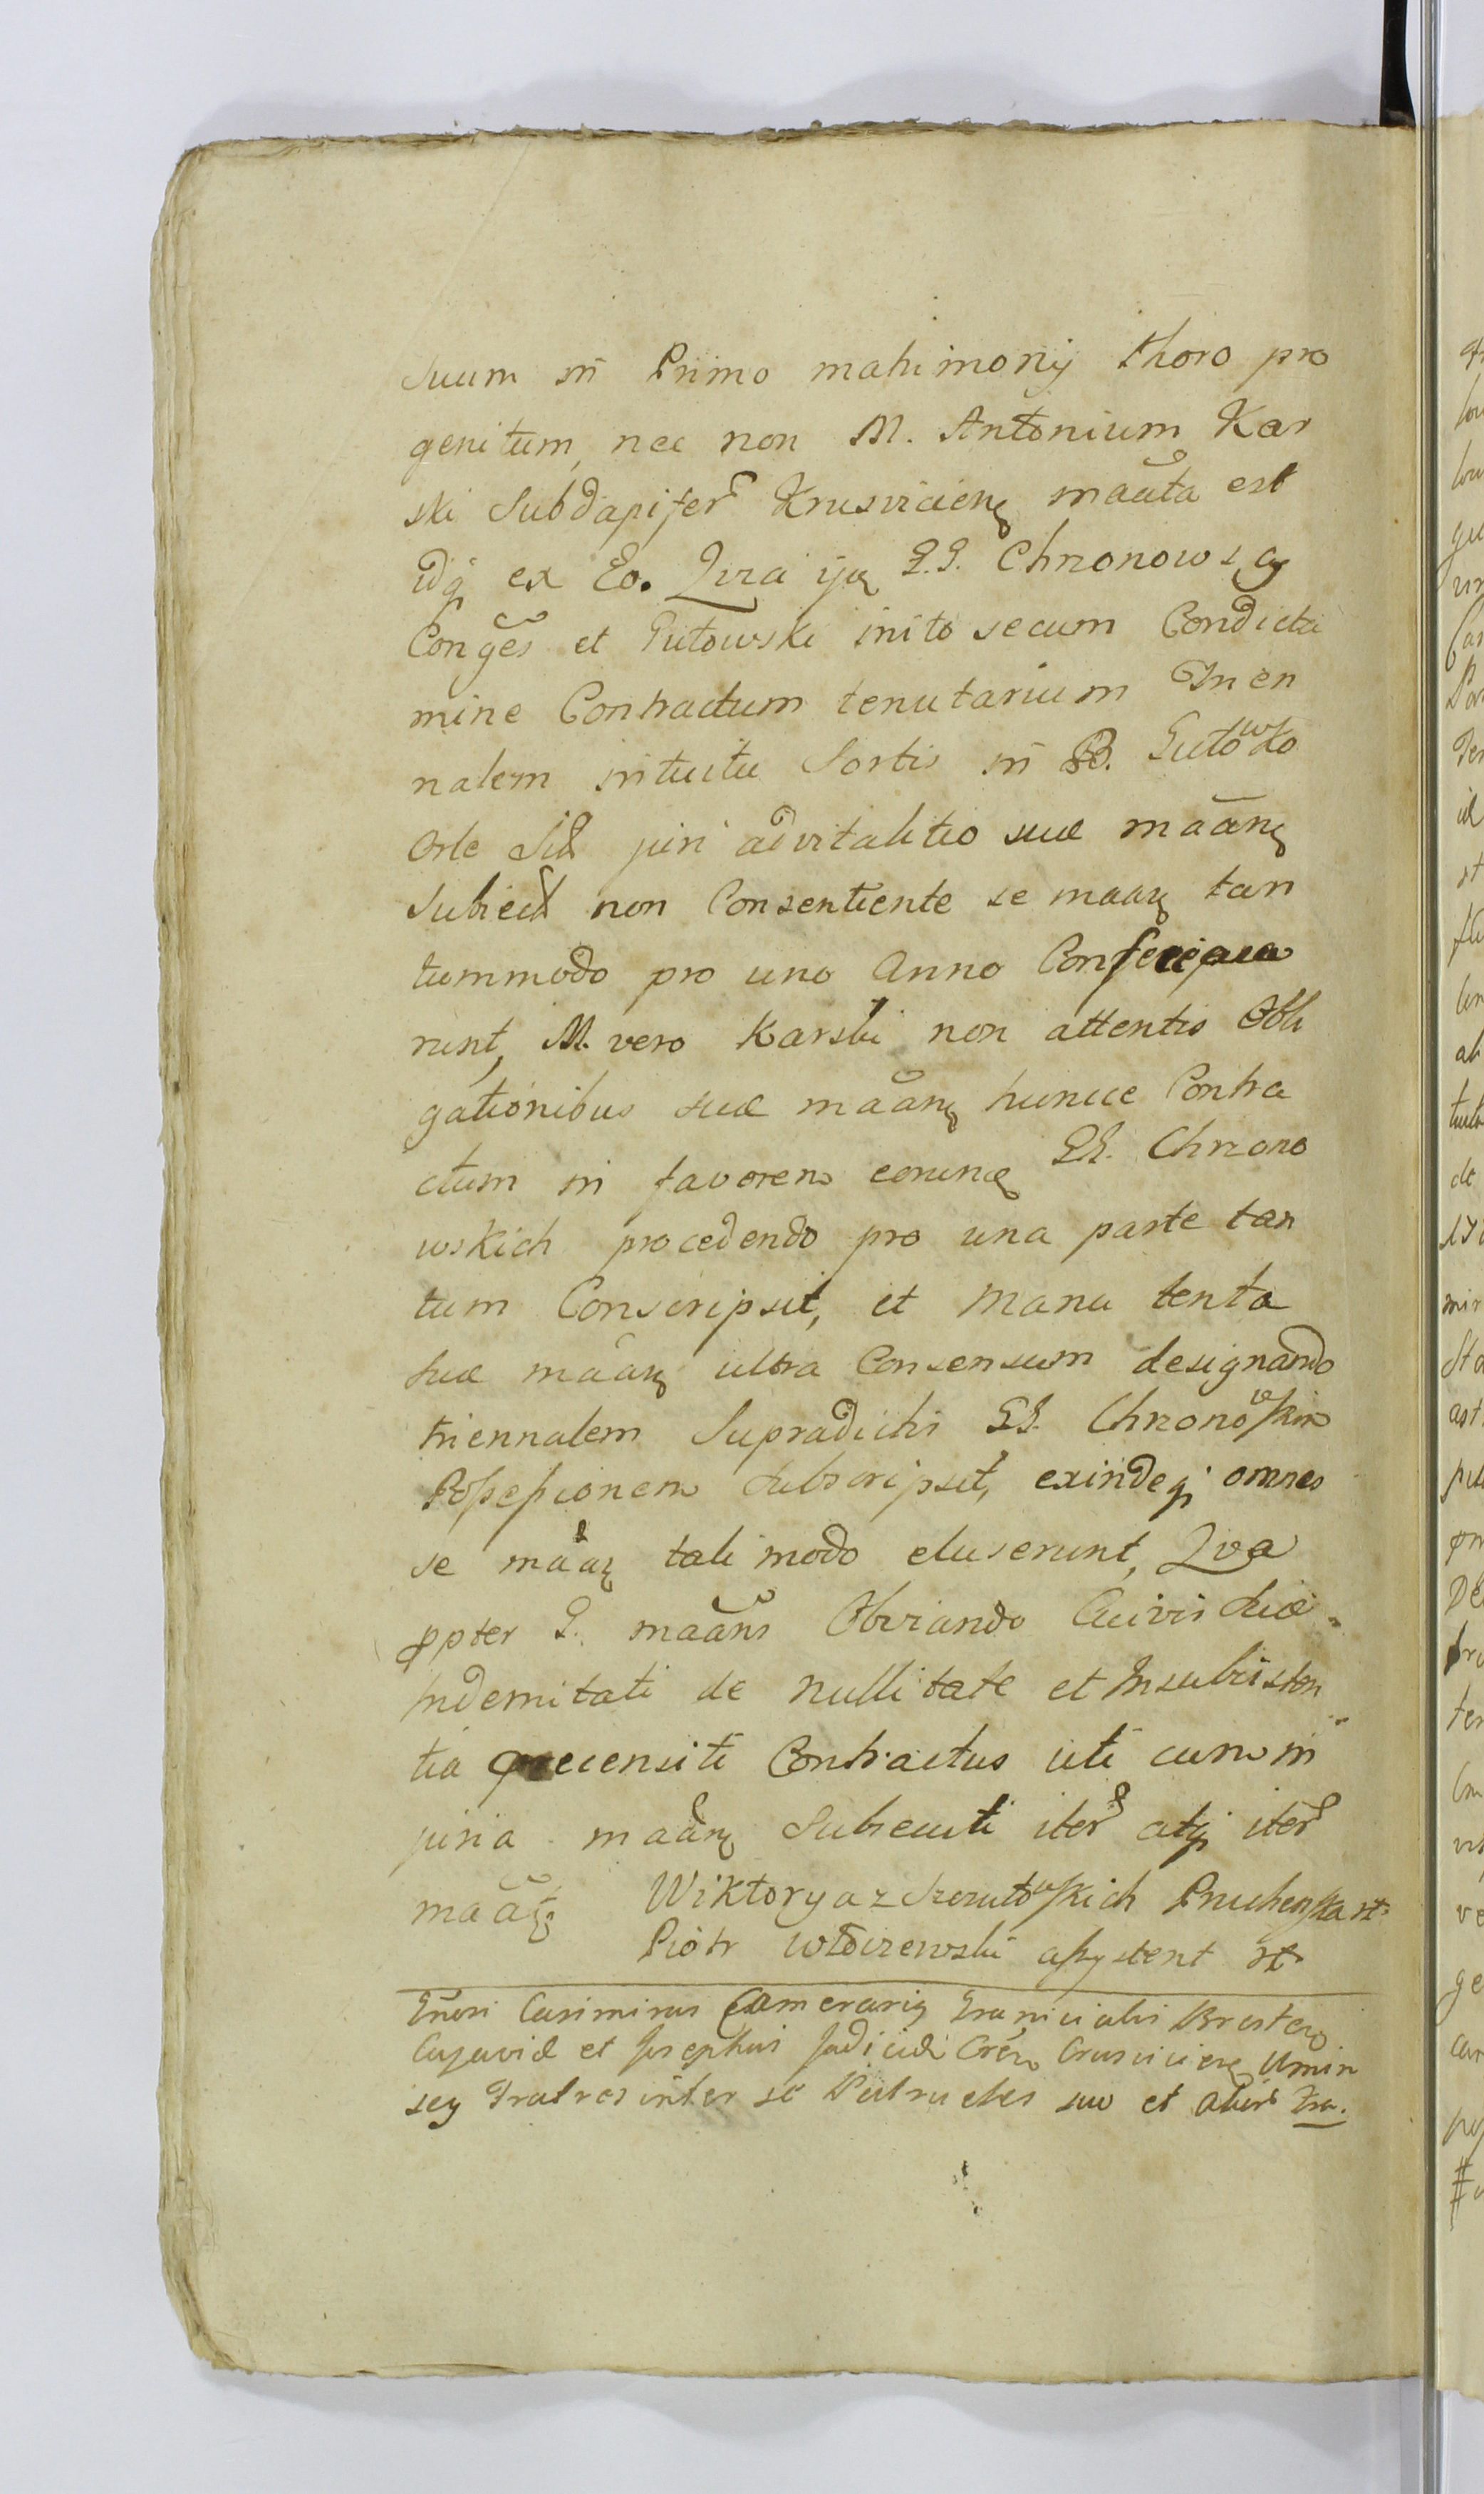 suum in Primo matrimonij thoro pro
genitum, nec non M. Antonium Kar
ski Subdapifer Krusvicien maãta est
idq ex Eo. Qvia ijdem GG. Chrzonowscy
Conges et Gutowski inito secum Condicta
mine Contractum tenutarium Trien
nalem intuitu Sortis in B. Gutowko
Orle Sub juri advitalitio suæ maãnæ
Subiect non Consentiente se maan tan
tummodo pro uno Anno Conscripse
runt, M. vero Karski non attentis Obli
gationibus suæ maãnæ huncce Contra
ctum in favorem eorundem GG. Chrzono
wskich procedendo pro una parte tan
tum Conscripsit, et Manu tenta
suæ maãn ultra Consensum designando
triennalem Supradictis GG. Chrzonowskim
Possessionem Subscripsit, exindeq omnes
se maãn tali modo eluserunt, Qva
ppter G. maãns Obviando Cuivis suæ
Indemnitati de Nullitate et Insubsisten
tia præcensiti Contractus uti cum in
juria maãn Subsecuti iter atq iter
maãt Wiktorya z Szczutowskich Pruchenska st
Piotr Włoczewski assystent st
Gnosi Casimirus Camerarius Granicialis Bresten
Cujaviæ et Josephus Judicial Cren Crusvicien Umin
scy Fratres inter se Patrueles suo et alior Fra.